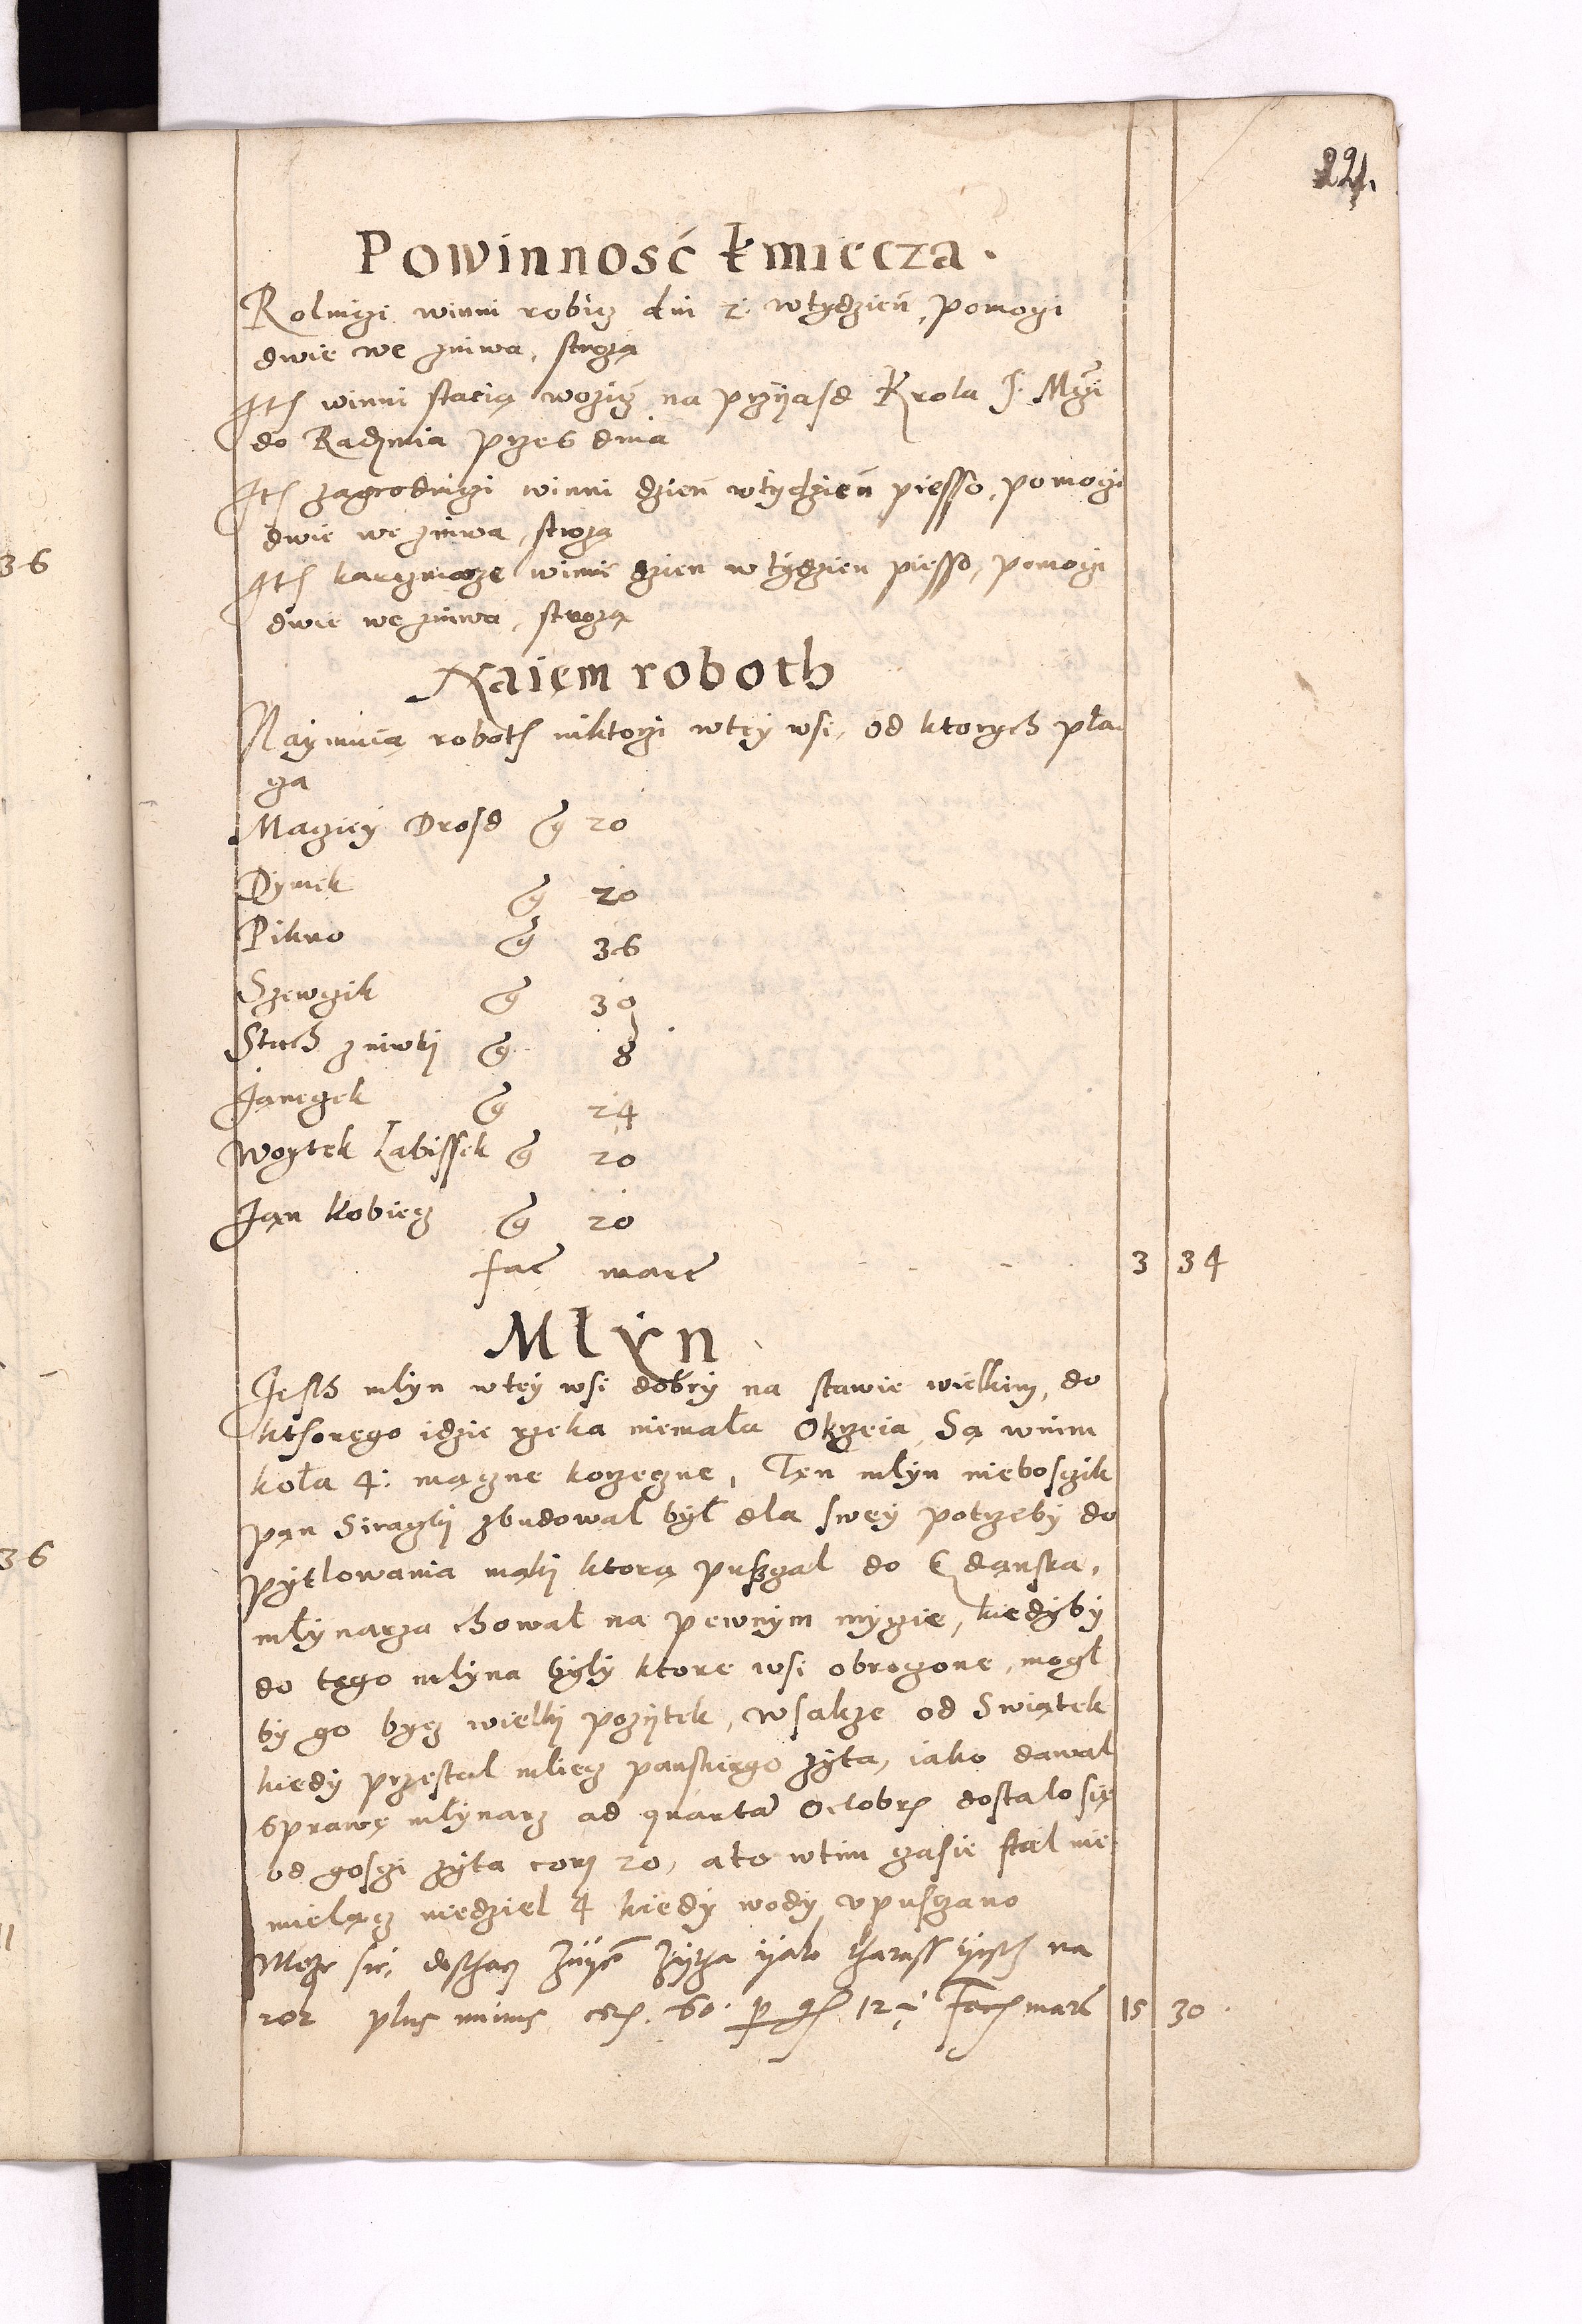 221.
Powinność kmiecza.
Rolniczi winni robicz dni 2: wtydzień, pomogi
dwie we zniwa, stroza
It~ winni stacią wozicz na przyiasd Krola J. Mczi
do Radzinia przes dnia
It~ zagrodniczi winni dzień wtydzień piesso, pomogi
dwie we zniwa, stroza
It~ karczmarze winni dzien wtydzien piesso, pomogi
dwie we zniwa, stroza
Naiem roboth
Naymuią roboth niktorzi wtey wsi, od ktorych pła
cza
Macziey Drosd g 20
Dymek g 20
Pikno g 36
Szewczik g 30
Stach z niwki g 8
Janeczek g 24
Woytek Labissek g 20
Jan Kobiecz g 20
fac~ marc~ 3 34
Młyn
Jesth młyn wtey wsi dobry na stawie wielkim, do
kthorego idzie rzeka niemała Okrzeia, Są wnim
koła 4: mączne korzeczne, Ten młyn nieboszcik
pan Siraczki zbudował był dla swey potrzeby do
pytlowania mąki ktorą pusczal do Gdanska,
młynarza chował na pewnym myczie, kiedyby
do tego młyna były ktore wsi obrocone, mogł
by go bycz wielki pozytek, wsakze od Swiątek
kiedy przestal mliecz panskiego zyta, iako dawal
sprawę młynarz ad quarta~ Octobr~ dostało się
od gosczi zyta cor~ 20, a to wtim czasie stal nie
mieląncz niedziel 4 kiedy wody vpusczano
Moze sie dosthacz zyta na
rok plus minus cor~. 60. p g~ 12 ÷ Fac~ marc~ 15 30.
36
36
11